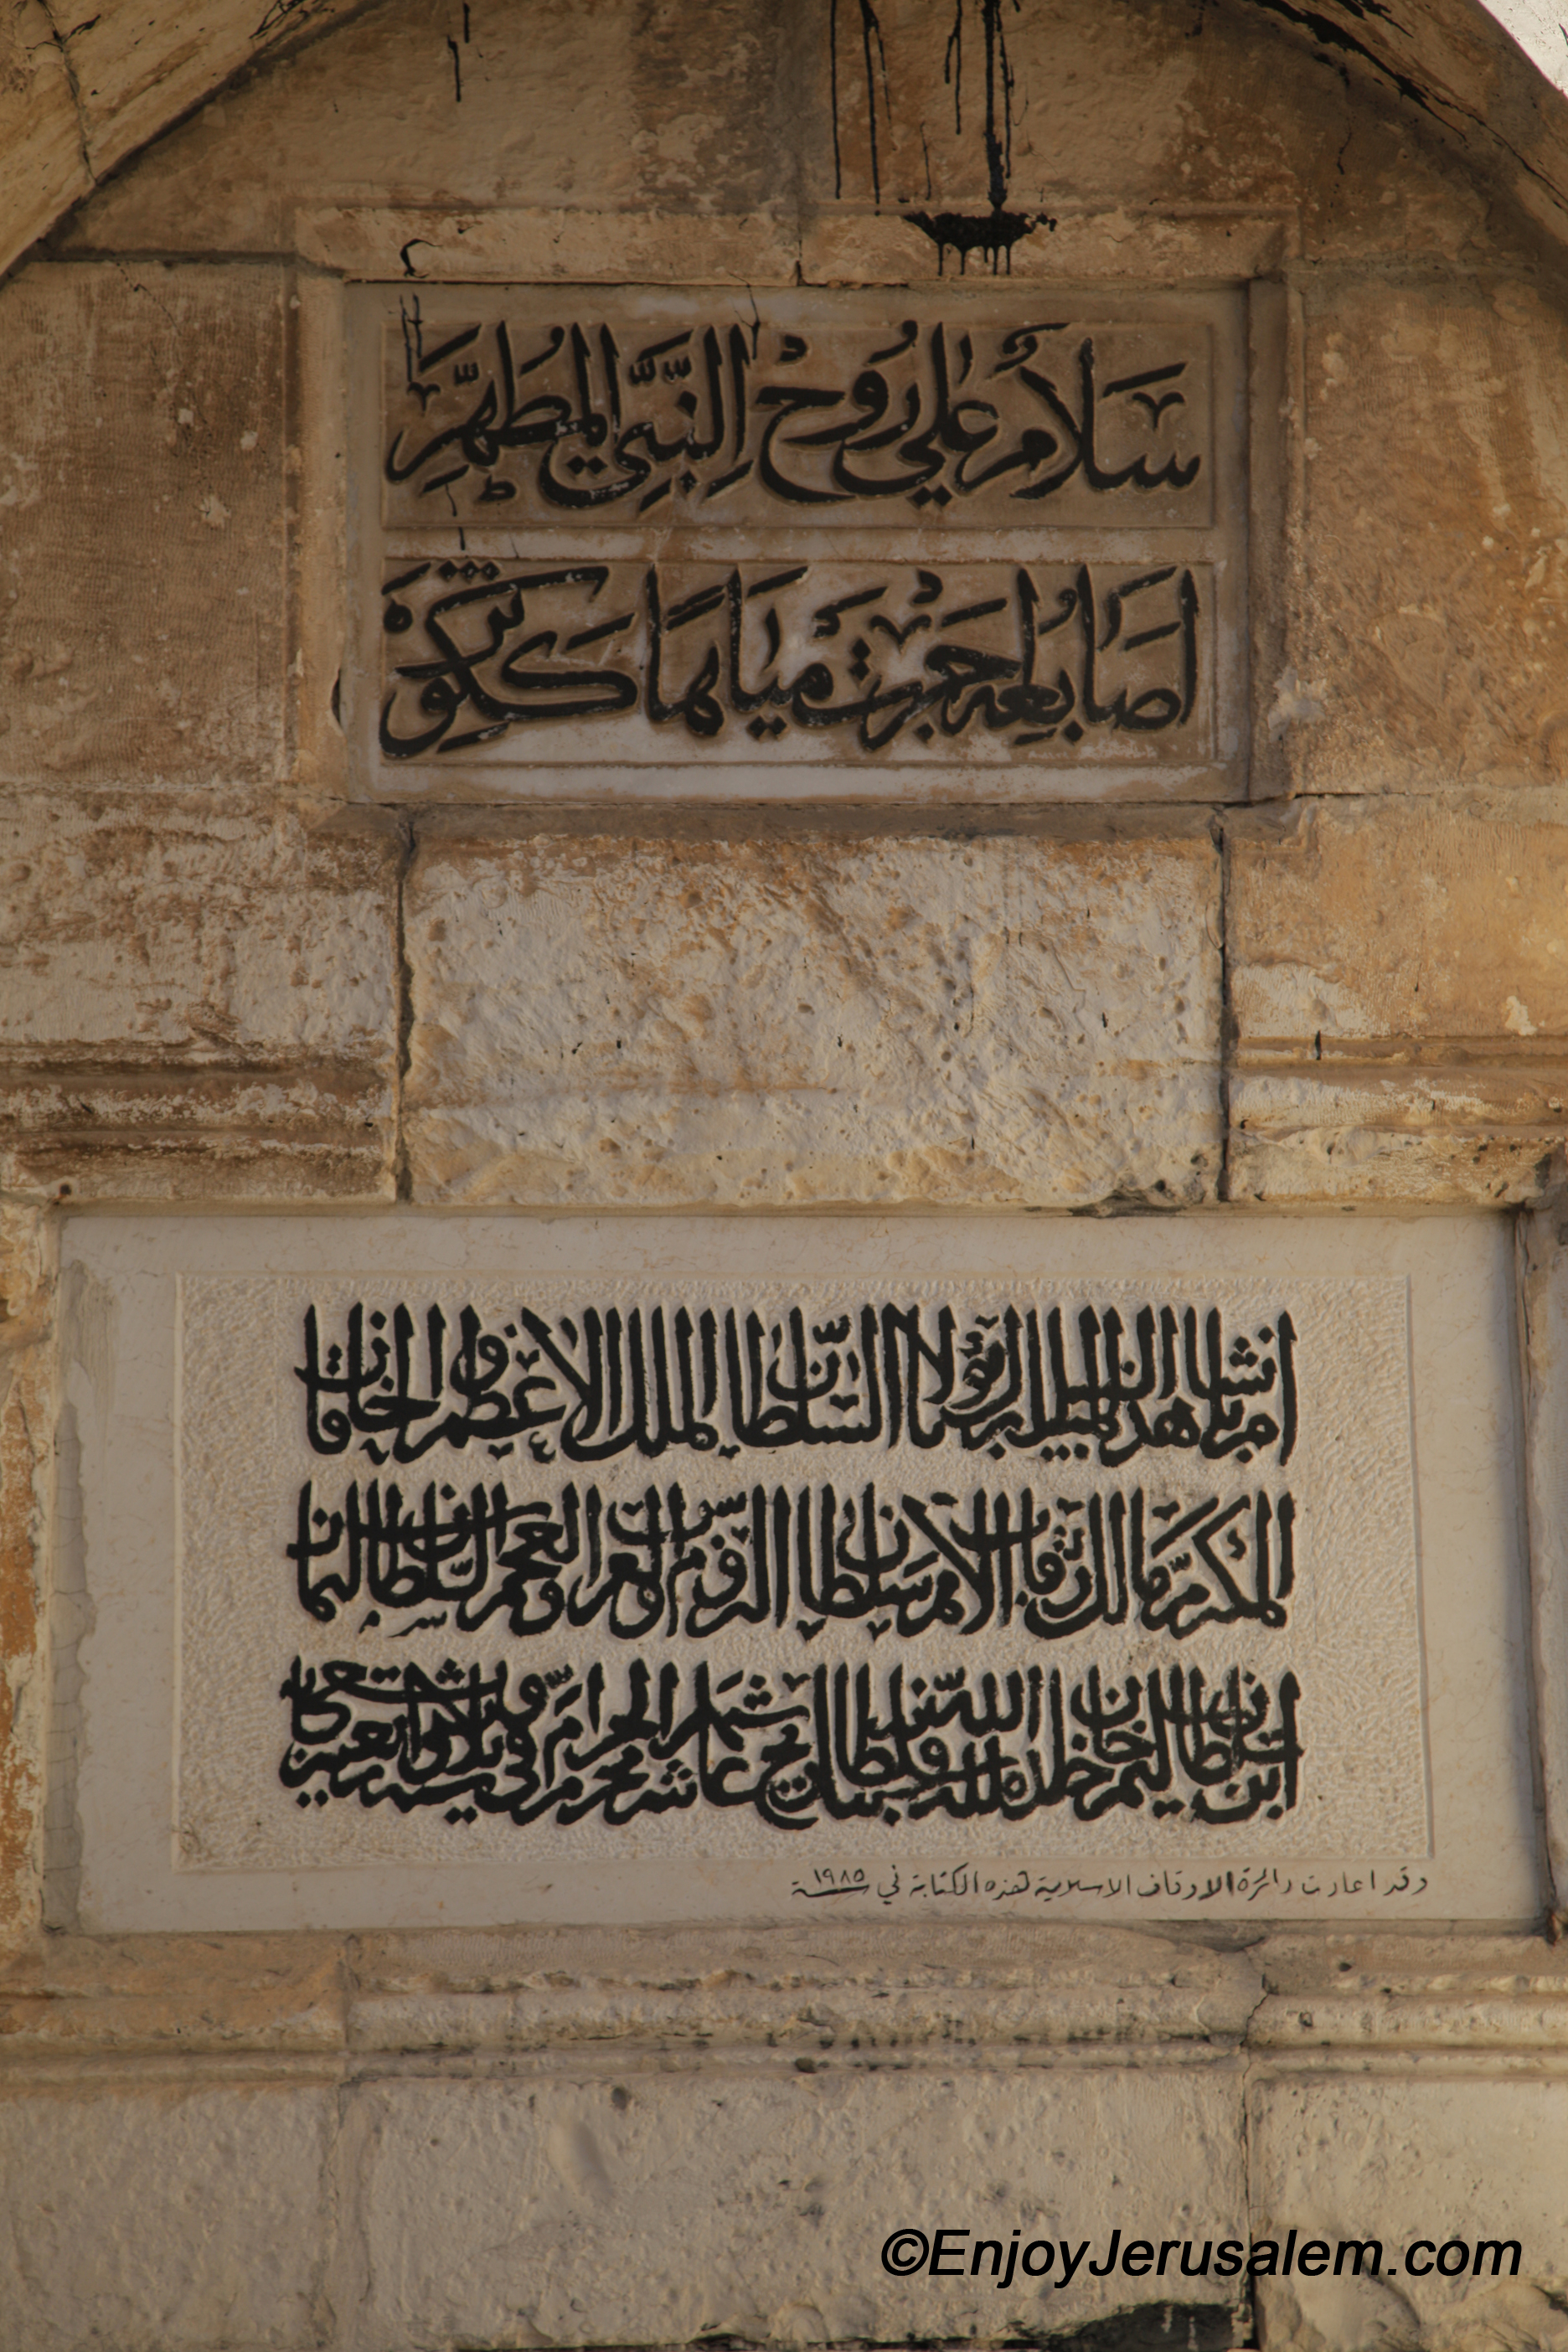 سَلَامٌ عَلٰي رُوْحْ اِلنَّبِيِّ الْمُطَهَّرِ
اَصَابُعِهِ جَرَتْ مِيَاهًا كَكَوْثَرْ
امر بانشا هذا السبيل المبارك مولانا السلطان الملك الاعظم والخاقان
المكرم مالك رقاب الامم سلطان الروم والعرب والعجم السلطان سليمان
ابن السلطان سليم خان خلد الله ملكه وسلطانه بتاريخ عاشر شهر محرم الحرام سنة ثلاث واربعين وتسعماية
وقد اعادت دائرة الاوقاف الاسلامية هذه الكتابة في سنة ١٩٨٥
©EnjoyJerusalem.com